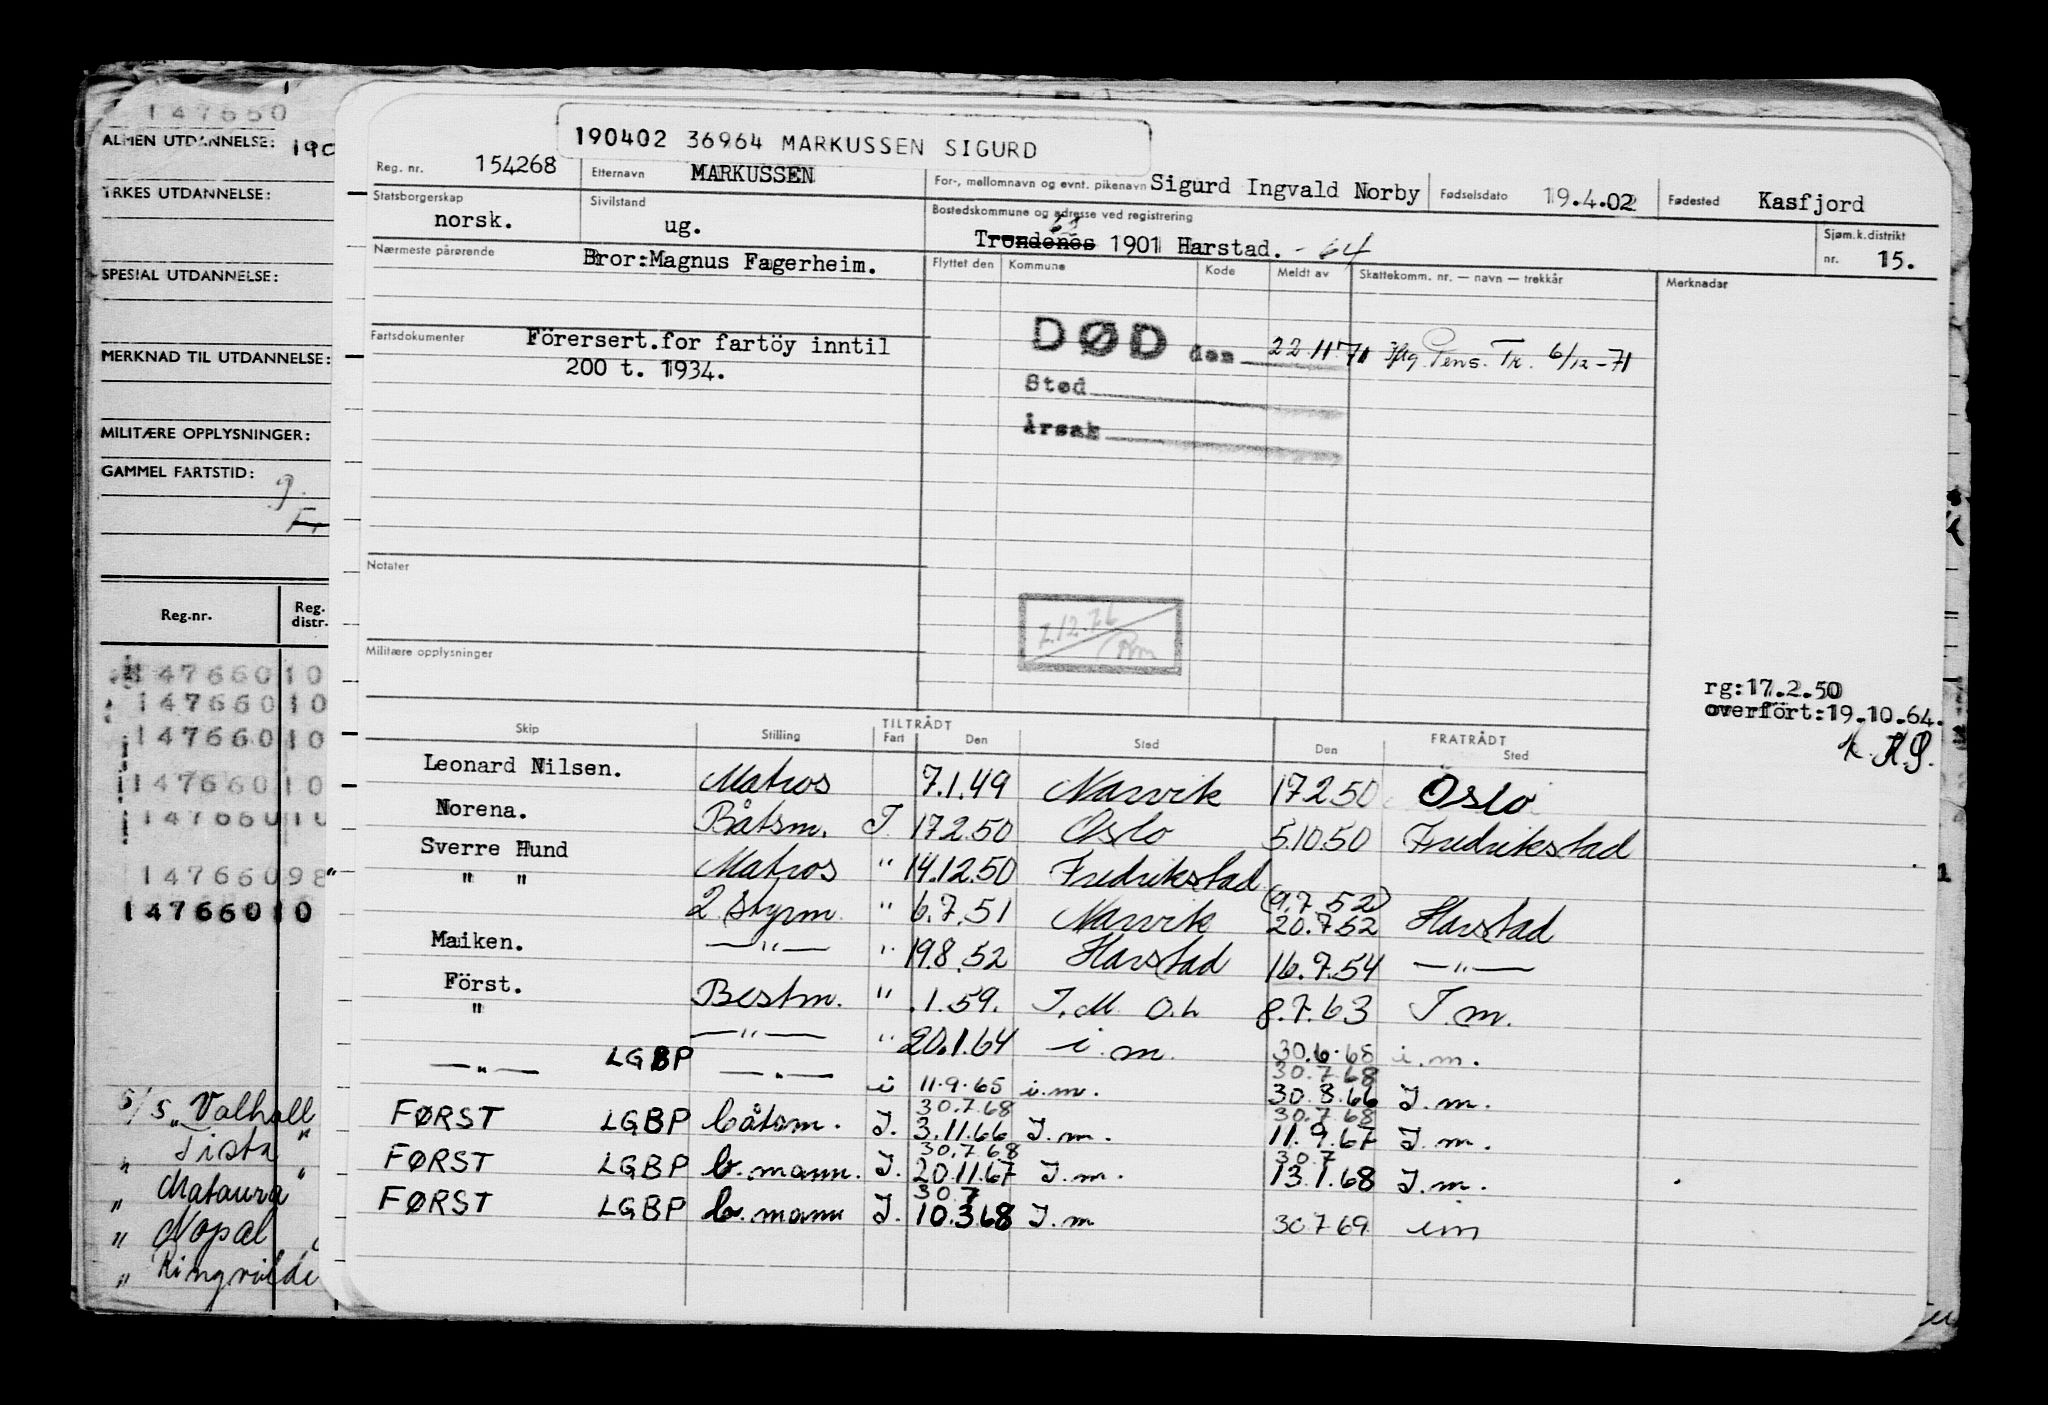 147660
ALMEN UTDANNELSE: 190
YRKES UTDANNELSE:
SPESIAL UTDANNELSE:
MERKNAD TIL UTDANNELSE:
MILITÆRE OPPLYSNINGER:
GAMMEL FARTSTID:
Reg.nr. Reg. distr.
147660 10
147660 10
147660 10
147660 10
147660 10
147660 98
147660 10
S/S „Valhall
„ Tista"
„ Mataura"
„ Nopal
„ Ringvilde
190402 36964 MARKUSSEN SIGURD
Reg. nr. 154268 Etternavn MARKUSSEN For-, mellomnavn og evnt. pikenavn Sigurd Ingvald Norby Fødselsdato 19.4.02 Fødested Kasfjord
Statsborgerskap norsk. Sivilstand ug. Bostedskommune og adresse ved registrering
Trondenes 1901 Harstad. - 64 Sjøm.k.distrikt nr. 15.
Nærmeste pårørende Bror:Magnus Fagerheim. Flyttet den Kommune Kode Meldt av Skattekomm. nr. — navn — trekkår Merknader
Fartsdokumenter Förersert.for fartöy inntil
200 t. 1934.
DØD den 22 11 71 Pens. Tr. 6/12-71
Sted
Årsak
Notater
7.12.76
Militære opplysninger
rg:17.2.50
overfört:19.10.64.
TILTRÅDT FRATRÅDT
Skip Stilling Fart Den Sted Den Sted
Leonard Nilsen. Matros 7.1.49 Narvik 17 2 50 Oslo
Norena. Båtsm. I 17 2.50 Oslo 5.10.50 Fredrikstad
Sverre Hund Matros " 14.12.50 Fredrikstad
" " 2 Styrm. " 6.7.51 Narvik (9.7.52) 20.7.52 Harstad
Maiken. —"— " 19.8.52 Harstad 16.7.54 —"—
Först. Bestm. " .1.59. I.M. O.h 8.7.63 I.m.
" —"— " 20.1.64 i.m. 30.6.65 i.m.
—"— LGBP —"— i 11.9.65 i.m. 30.7.68 30.8.66 I.m.
FØRST LGBP båtsm. I. 30.7.68 3.11.66 I.m. 30.7.68 11.9.67 I.m.
FØRST LGBP b.mann. I. 30.7.68 20.11.67 I.m. 30.7 13.1.68 I.m.
FØRST LGBP b.mann I. 30.7 10.3.68 I.m 30.7.69 i m